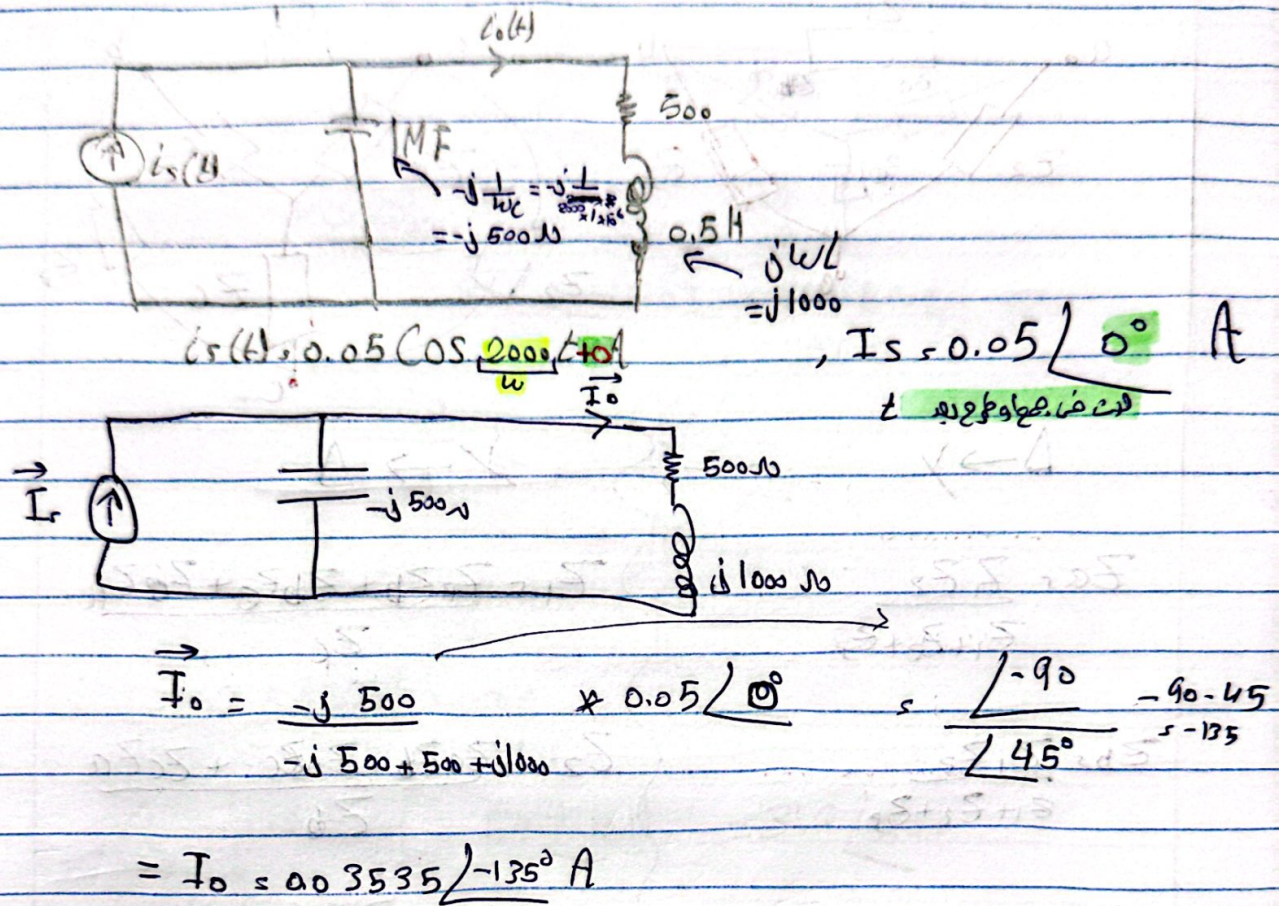 i₀(t)
500
is(t)
1MF
-j 1/wc = -j 1/2000×1×10⁻⁶
= -j 500 Ω
0.5H
jwL
= j1000
is(t) = 0.05 Cos 2000 t+0 A , Is = 0.05∠0° A
w
t
I₀
500Ω
Is
-j 500Ω
j 1000 Ω
I₀ = -j 500 / -j 500 + 500 + j1000 * 0.05∠0° = ∠-90 / ∠45° -90-45
= -135
= I₀ = 0.03535∠-135° A